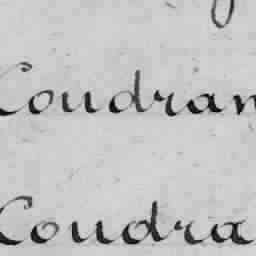 Coudran
Coudra